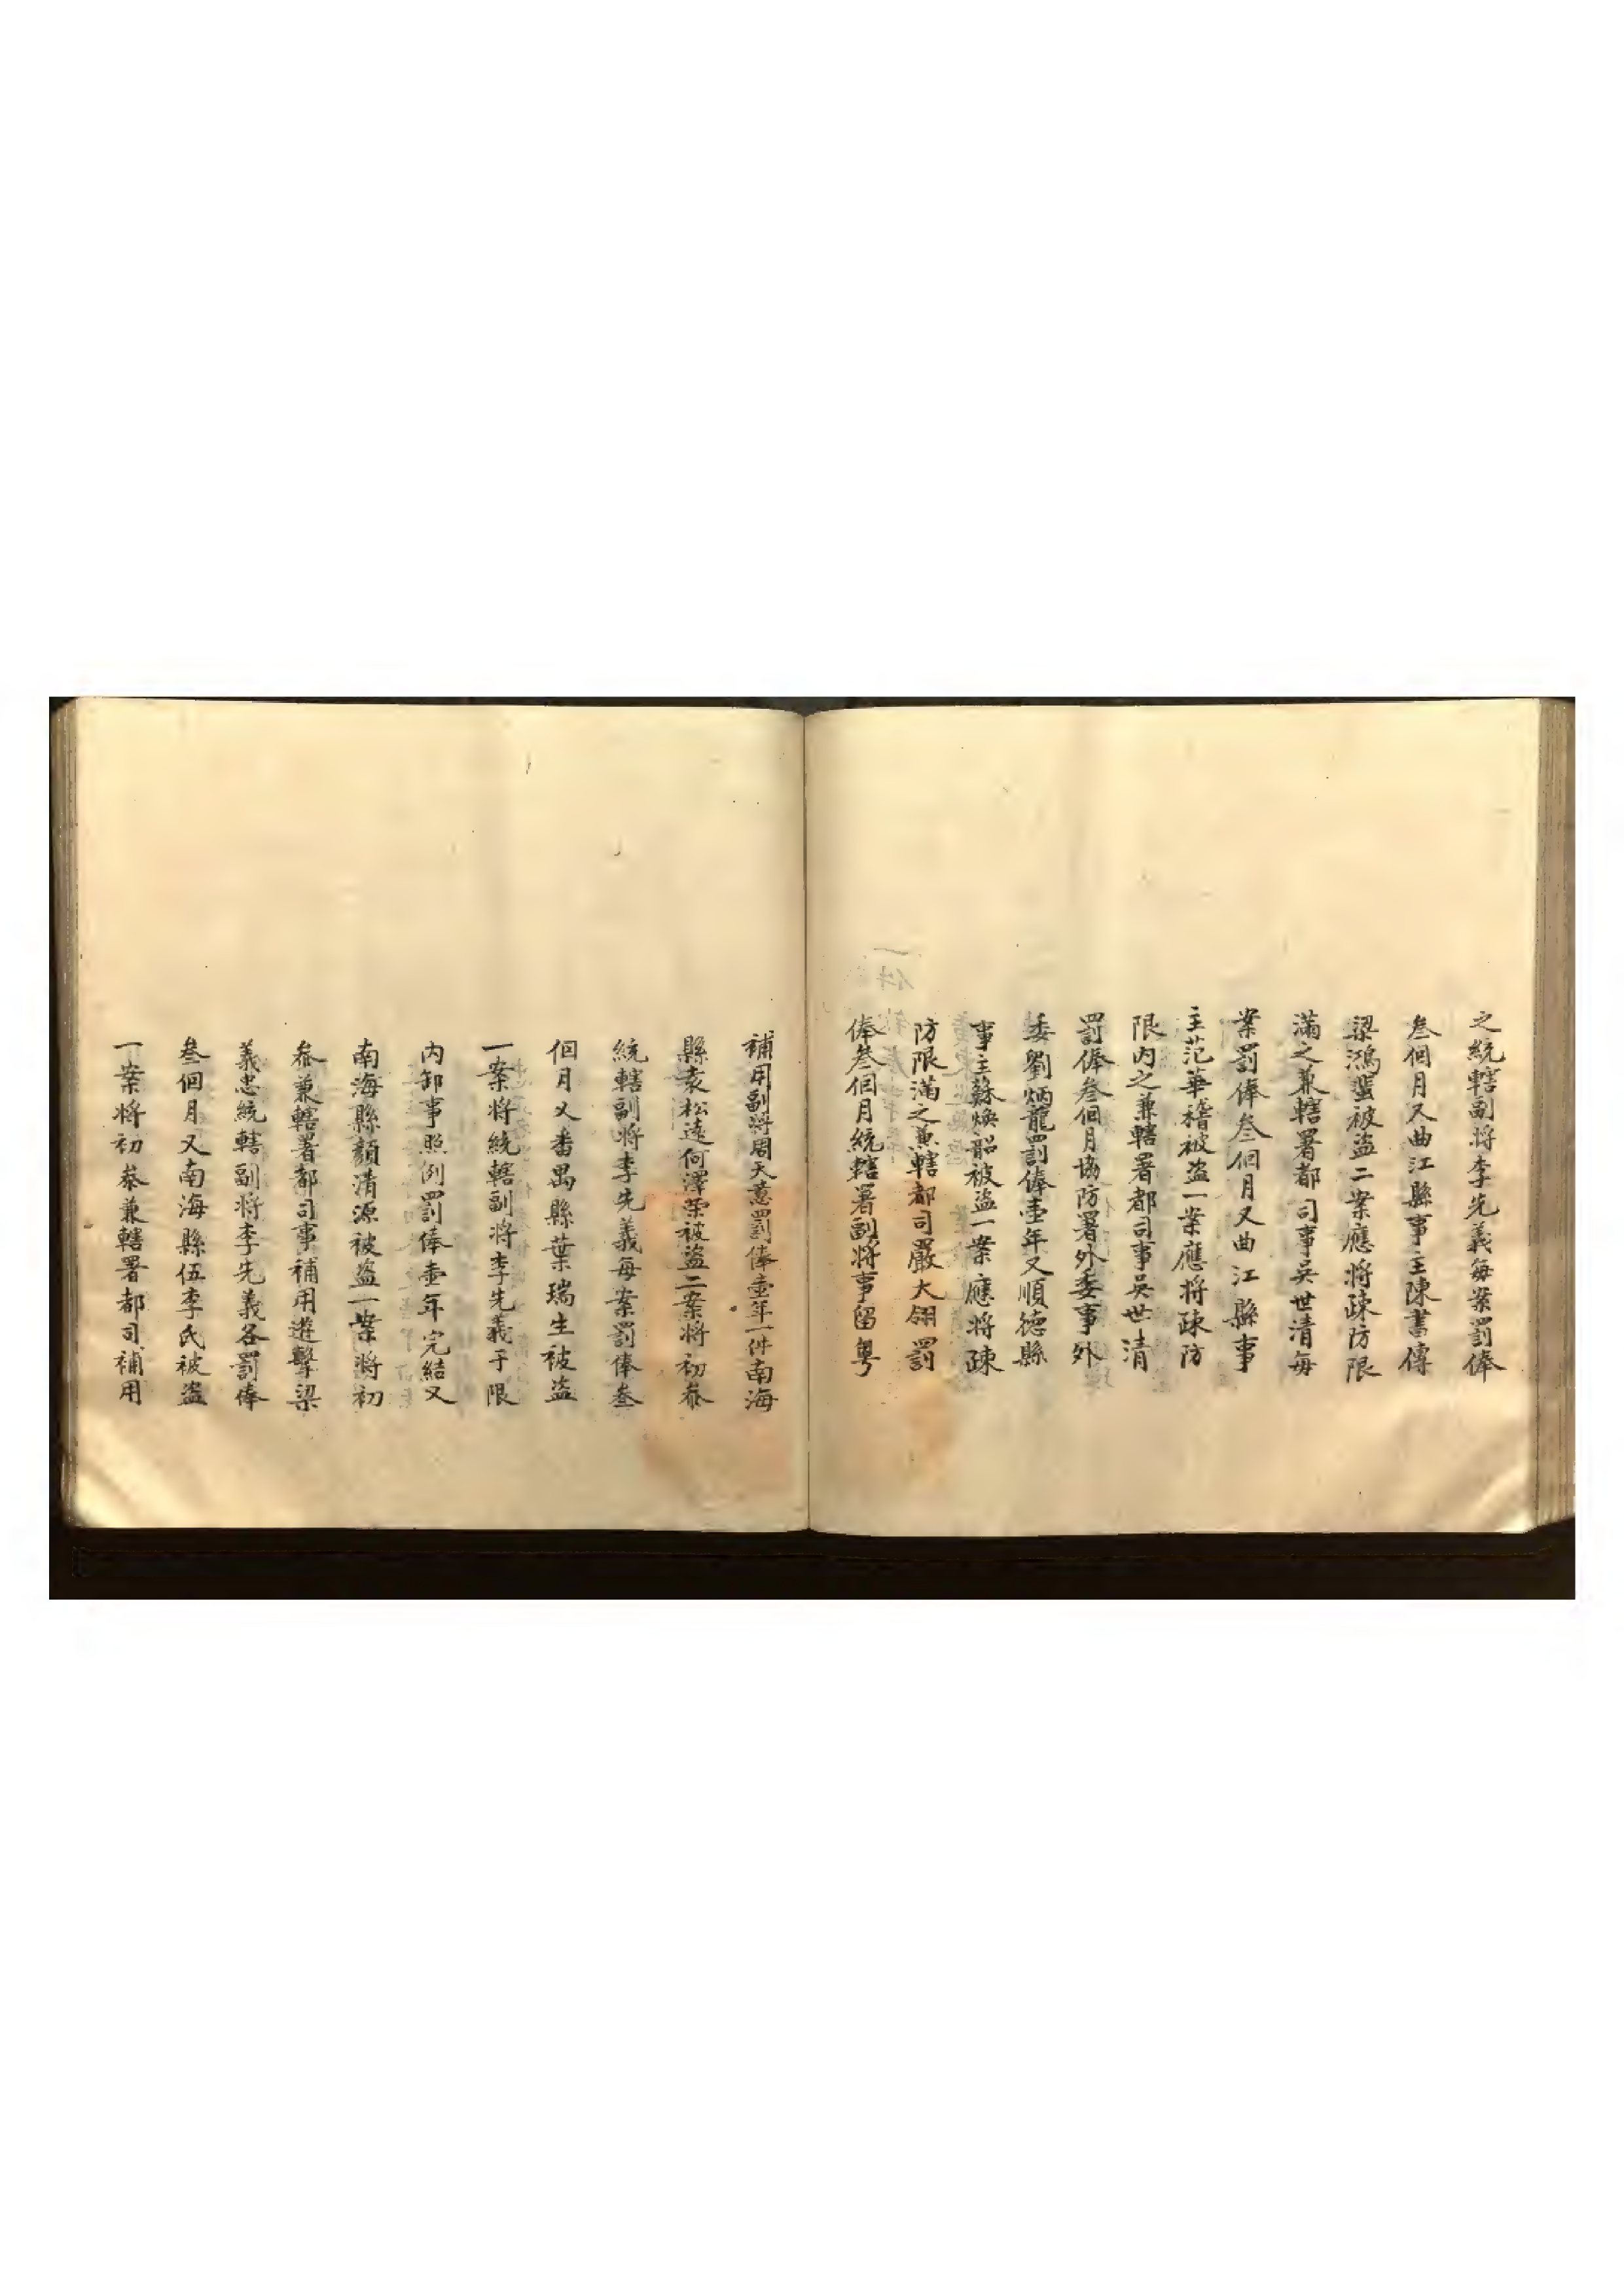 之統轄副將李先義每案罰俸
叁個月又曲江縣事主陳書傳
梁鴻蜚被盜二案應將疎防限
滿之兼轄署都司事吳世清每
案罰俸叁個月又曲江縣事
主范華稽被盜一案應將疎防
限內之兼轄署都司事吳世清
罰俸叁個月協防署外委事外
委劉炳龍罰俸壹年又順德縣
事主蘇煥韶被盜一案應將疎
防限滿之兼轄都司嚴大翎罰
俸叁個月統轄署副將事留粵
補用副將周天意罰俸壹年一件南海
縣袁松遠何澤榮被盜二案將初叅
統轄副將李先義每案罰俸叁
個月又番禺縣葉瑞生被盜
一案將統轄副將李先義于限
內卸事照例罰俸壹年完結又
南海縣顏清源被盜一案將初
叅兼轄署都司事補用遊擊梁
義忠統轄副將李先義各罰俸
叁個月又南海縣伍李氏被盜
一案將初叅兼轄署都司補用